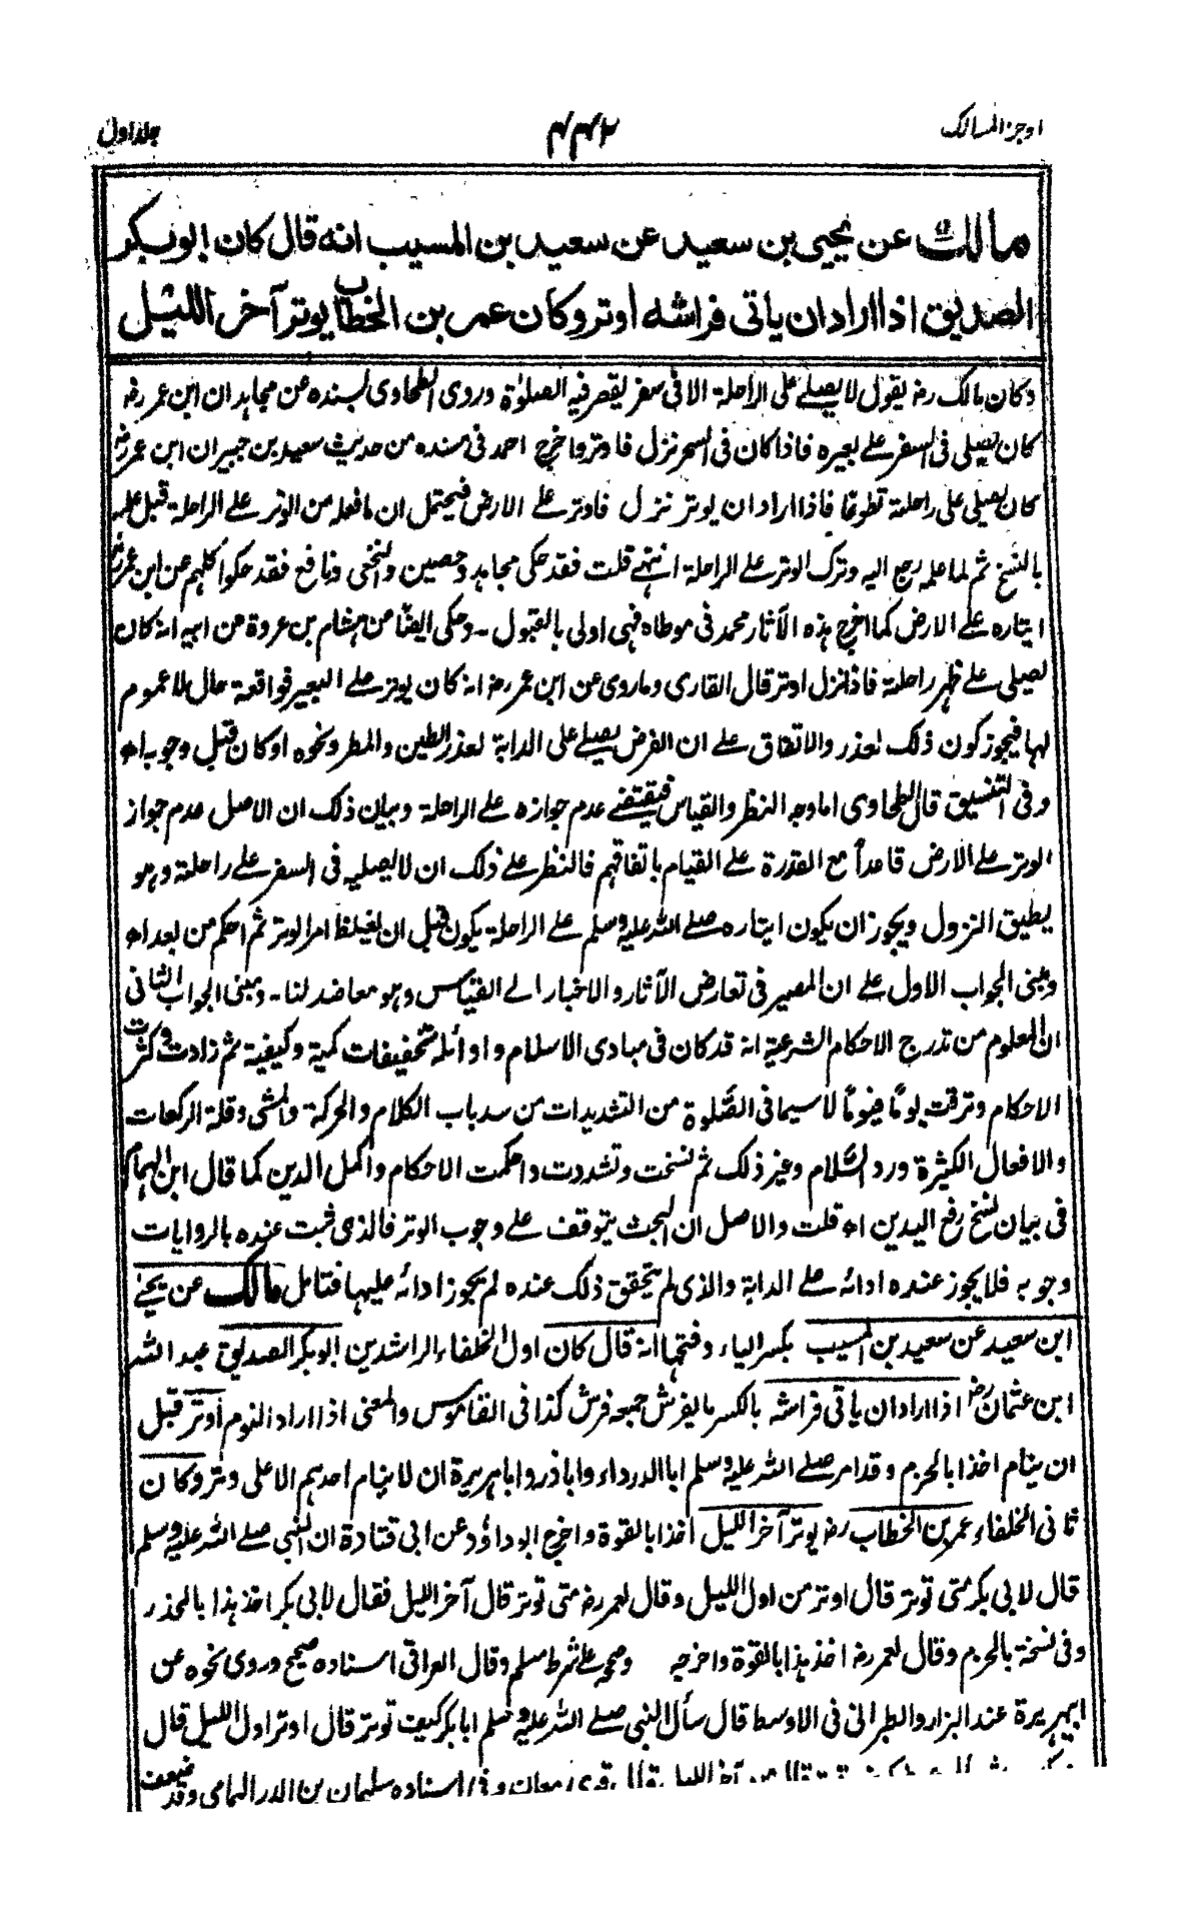 اوجز المسالك
٤٤٢
جلد اول
مالك عن يحيى بن سعيد عن سعيد بن المسيب انه قال كان ابو بكر
الصديق اذا اراد ان ياتى فراشه اوتر وكان عمر بن الخطاب يوتر آخر الليل
وكان مالك رض يقول لا يصلے على الراحلة الا فى سفر يقصر فيه الصلوٰة وروى الطحاوى بسنده عن مجاهد ان ابن عمر رض
كان يصلى فى السفر علے بعيره فاذا كان فى السحر نزل فاوتر واخرج احمد فى مسنده من حديث سعيد بن جبير ان ابن عمر رض
كان يصلى على راحلته تطوعًا فاذا اراد ان يوتر نزل فاوتر علے الارض فيحتمل ان ما فعله من الوتر علے الراحلة قبل علمه
بالنسخ ثم لما علمه رجع اليه وترك الوتر علے الراحلة انتهے قلت فقد حكى مجاهد وحصين والنخعى ونافع فقد حكوا كلهم عن ابن عمر رض
ايتاره علے الارض كما اخرج هذه الآثار محمد فى موطاه فهى اولى بالقبول ۔ وحكى ايضًا من هشام بن عروة من ابيه انه كان
يصلى علے ظهر راحلته فاذا نزل اوتر قال القارى وما روى عن ابن عمر رض انه كان يوتر علے البعير فواقعة حال لا عموم
لها فيجوز كون ذلك لعذر والاتفاق علے ان الفرض يصلے على الدابة لعذر الطين والمطر ونحوه او كان قبل وجوبه اھ
وفى التنسيق قال الطحاوى اما وجه النظر والقياس فيقتضے عدم جوازه علے الراحلة وبيان ذلك ان الاصل عدم جواز
الوتر علے الارض قاعداً مع القدرة علے القيام باتفاقهم فالنظر علے ذلك ان لا يصليه فى السفر علے راحلته وهو
يطيق النزول ويجوز ان يكون ايتاره صلے الله عليه وسلم علے الراحلة يكون قبل ان يغلظ امر الوتر ثم احكم من بعد اھ
ومبنى الجواب الاول علے ان المصير فى تعارض الآثار والاخبار الے القياس وهو معاضد لنا ۔ ومبنى الجواب الثانى
ان المعلوم من تدرج الاحكام الشرعية انه قد كان فى مبادى الاسلام و اوائله تخفيفات كمية وكيفية ثم زادت وكثرت
الاحكام وترقت يومًا فيومًا لا سيما فى الصلوة من التشديدات من سد باب الكلام والحركة والمشى وقلة الركعات
والافعال الكثيرة ورد السلام وغير ذلك ثم نسخت وتشددت واحكمت الاحكام واكمل الدين كما قال ابن الهمام
فى بيان نسخ رفع اليدين اھ قلت والاصل ان البحث يتوقف علے وجوب الوتر فالذى ثبت عنده بالروايات
وجوبه فلا يجوز عنده ادائه علے الدابة والذى لم يتحقق ذلك عنده لم يجوز ادائه عليها فتامل مالك عن يحيے
ابن سعيد عن سعيد بن المسيب بكسر الياء وفتحها انه قال كان اول الخلفاء الراشدين ابو بكر الصديق عبد الله
ابن عثمان رض اذا اراد ان ياتى فراشه بالكسر ما يفرش جمعه فرش كذا فى القاموس والمعنى اذا اراد النوم اوتر قبل
ان ينام اخذا بالحزم وقد امر صلے الله عليه وسلم ابا الدرداء وابا ذر وابا هريرة ان لا ينام احدهم الا على وتر وكان
ثانى الخلفاء عمر بن الخطاب رض يوتر آخر الليل اخذا بالقوة واخرج ابو داؤد عن ابى قتادة ان النبى صلے الله عليه وسلم
قال لابى بكر متى توتر قال اوتر من اول الليل وقال لعمر رض متى توتر قال آخر الليل فقال لابى بكر اخذ هذا بالحذر
وفى نسخة بالحزم وقال لعمر رض اخذ هذا بالقوة واخرجه وصححه على شرط مسلم وقال العراقى اسناده صحيح وروى نحوه عن
ابيهريرة عند البزار والطبرانى فى الاوسط قال سأل النبى صلے الله عليه وسلم ابا بكر كيف توتر قال اوتر اول الليل قال
معان وفى اسناده سليمان بن داؤد اليمامى وقد ضعف